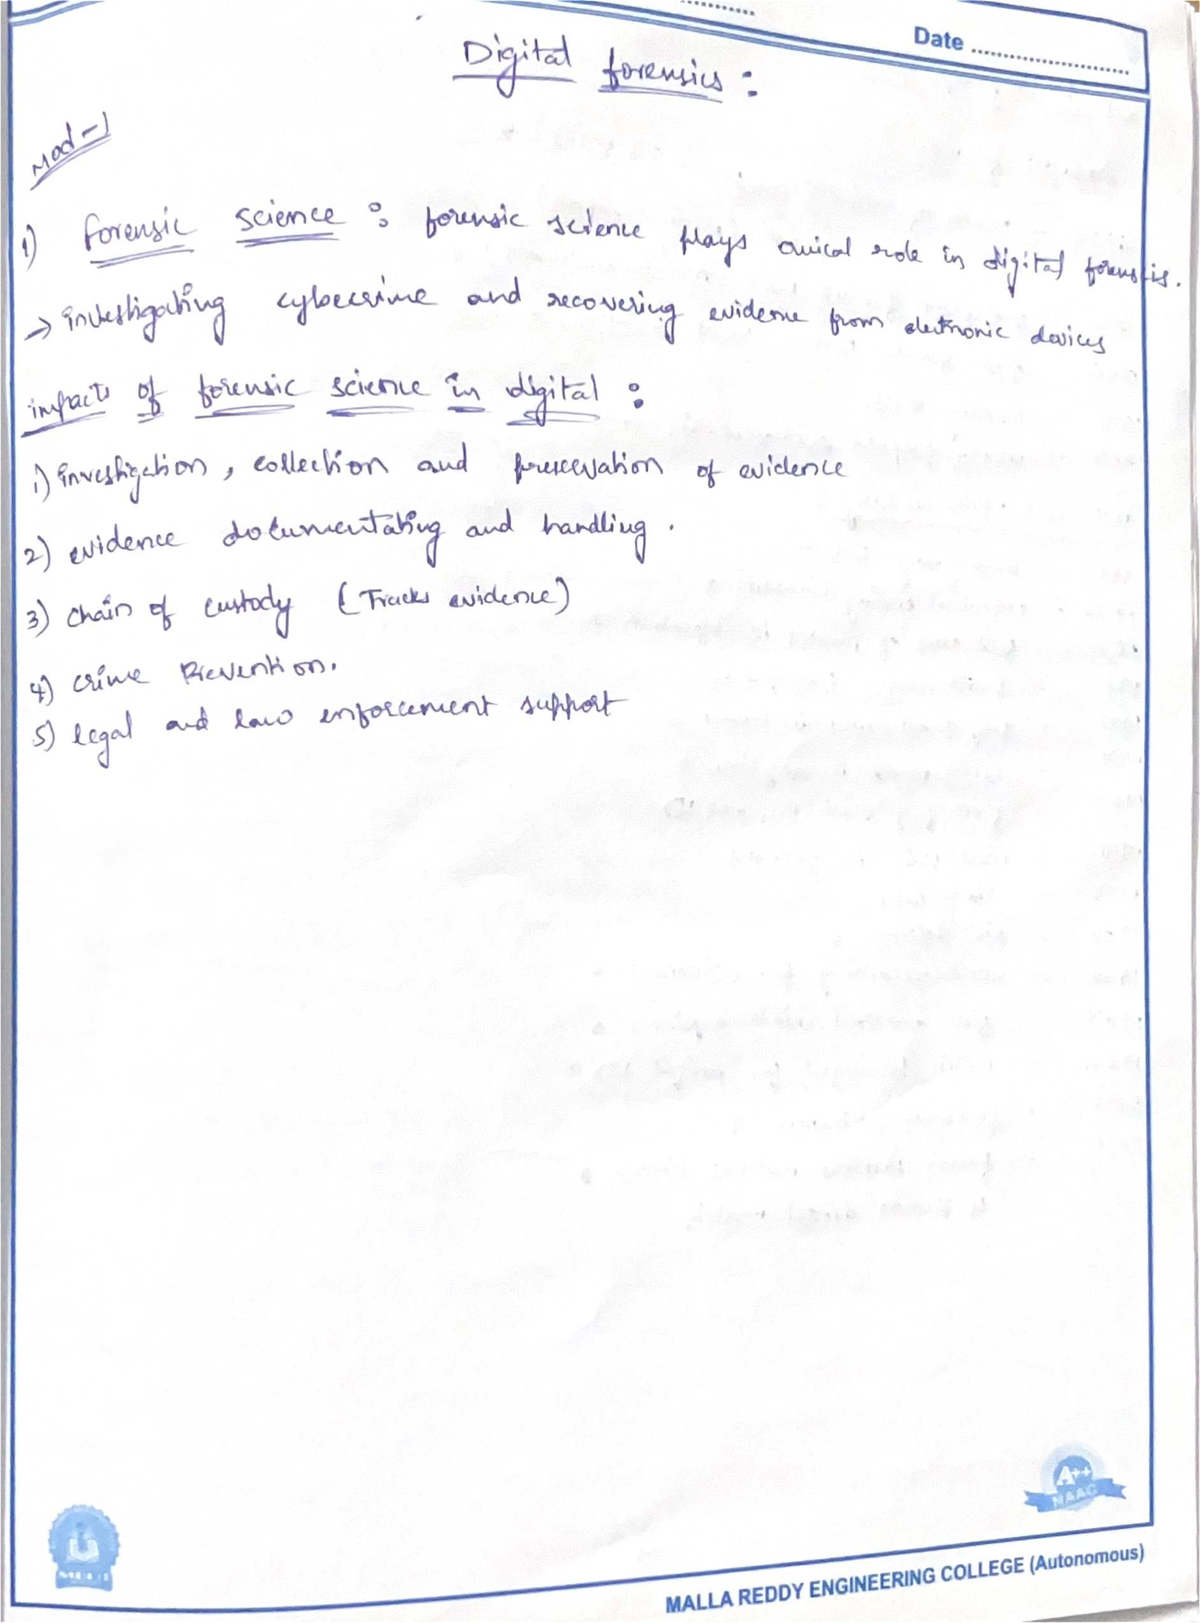 Date ........................
Digital forensics :
Mod-1
1) Forensic science : forensic science plays crucial role in digital forensics.
→ investigating cybercrime and recovering evidence from electronic devices
impacts of forensic science in digital :
1) investigation, collection and preservation of evidence
2) evidence documentating and handling.
3) chain of custody (Tracks evidence)
4) crime Prevention.
5) legal and law enforcement support
A++
NAAC
MALLA REDDY ENGINEERING COLLEGE (Autonomous)